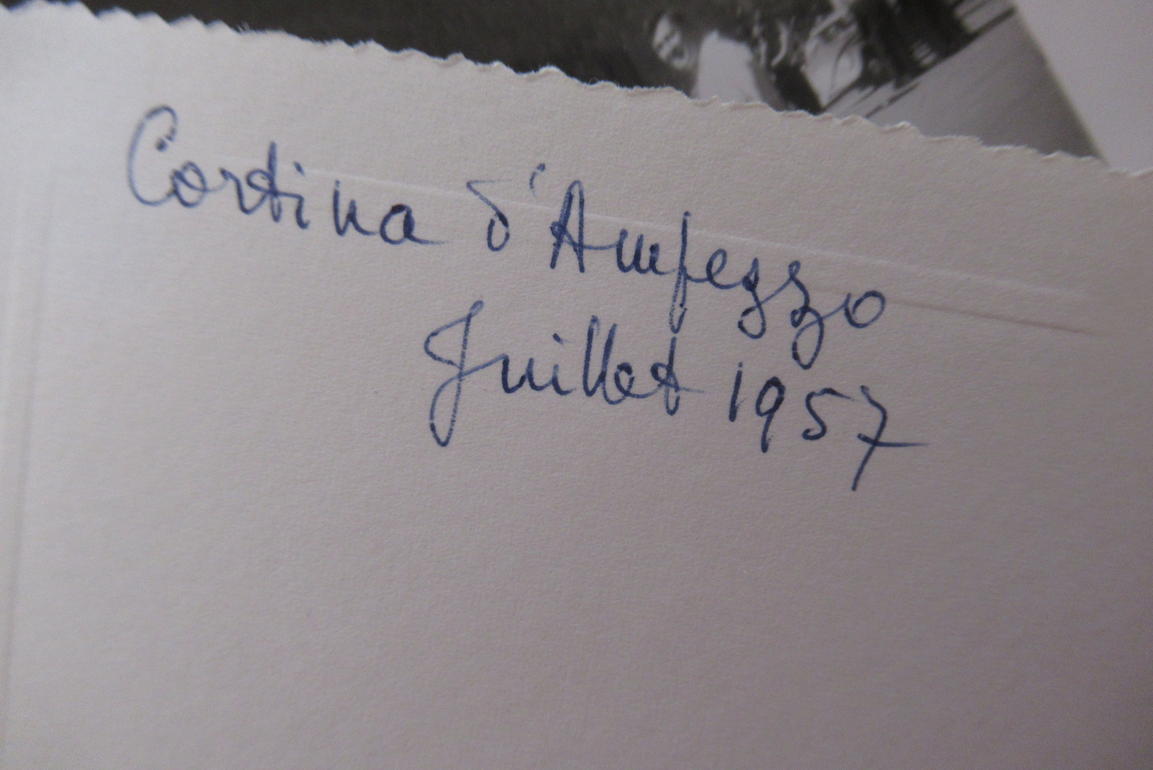 Cortina d'Ampezzo
Juillet 1957